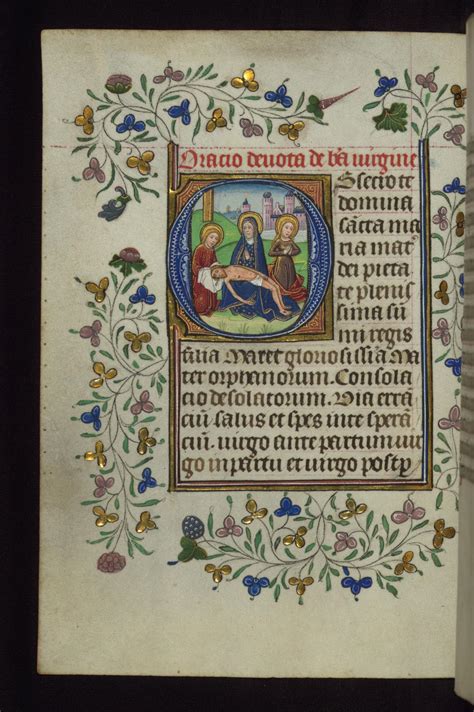 Oracio devota de bt̄a virgine
Obsecro te
domina
sancta ma
ria mat᷑
dei pieta
te plenis
sima sū
mi regis
filia Mater gloriosissīa Ma
ter orphanorum. Consola
cio desolatorum. Via errā
ciū salus et spes in te sperā
ciū. virgo ante partum vir
go in partu et virgo post ꝑ